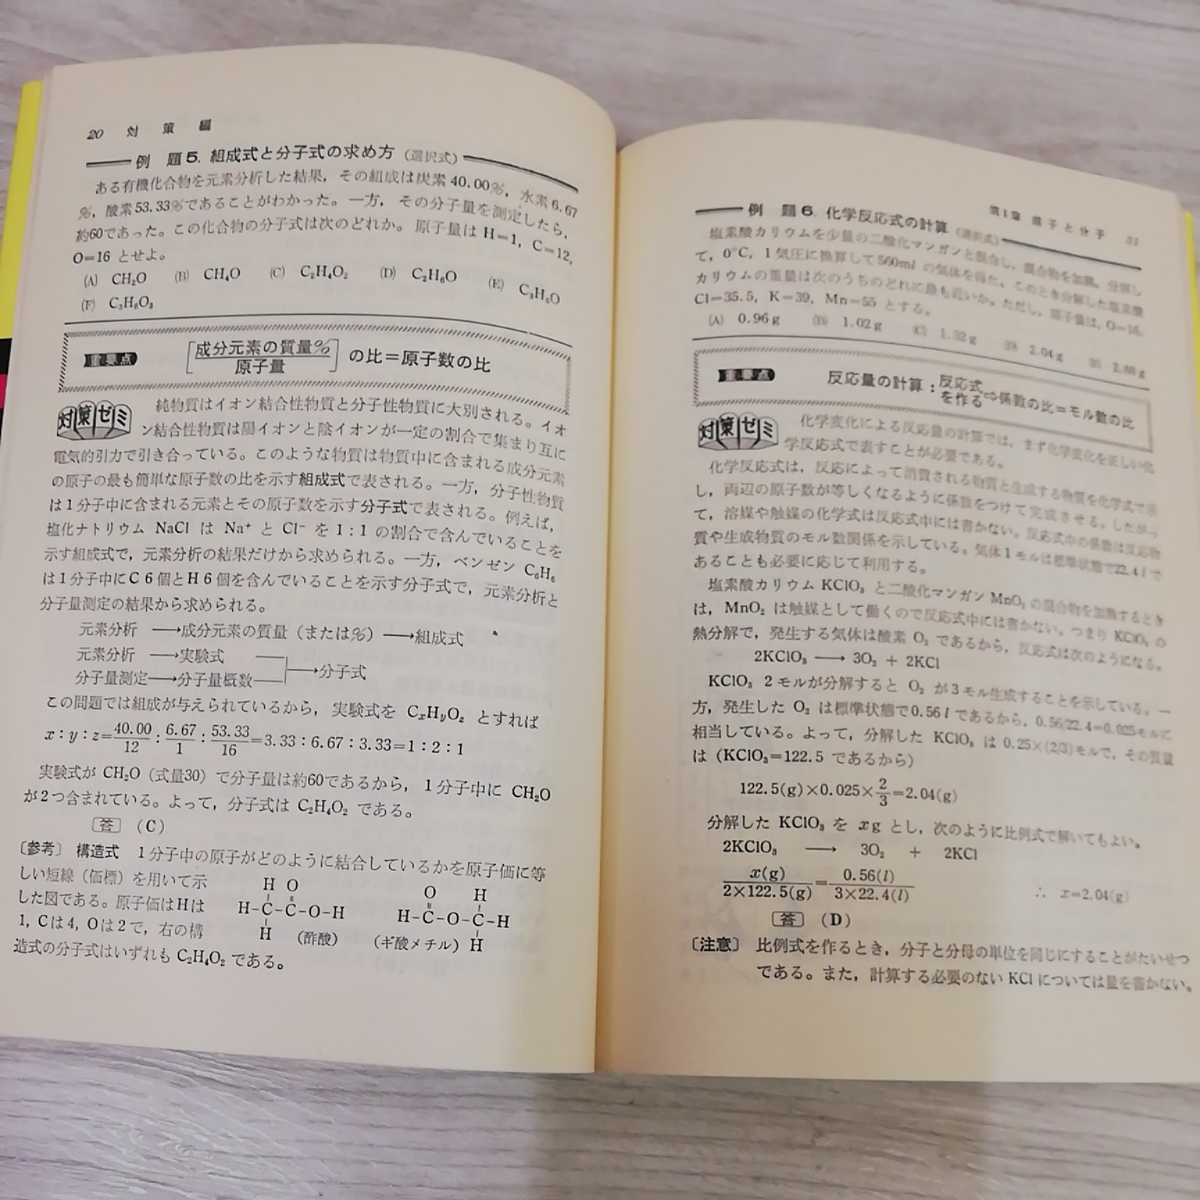 20 対策編
例 題 5. 組成式と分子式の求め方 (選択式)
ある有機化合物を元素分析した結果, その組成は炭素40.00%, 水素6.67
%, 酸素53.33%であることがわかった。一方, その分子量を測定したら,
約60であった。この化合物の分子式は次のどれか。原子量は H=1, C=12,
O=16 とせよ。
(A) CH₂O (B) CH₄O (C) C₂H₄O₂ (D) C₂H₆O (E) C₃H₈O
(F) C₃H₆O₃
重要点 [成分元素の質量%/原子量] の比=原子数の比
対策ゼミ 純物質はイオン結合性物質と分子性物質に大別される。イオ
ン結合性物質は陽イオンと陰イオンが一定の割合で集まり互に
電気的引力で引き合っている。このような物質は物質中に含まれる成分元素
の原子の最も簡単な原子数の比を示す組成式で表される。一方, 分子性物質
は1分子中に含まれる元素とその原子数を示す分子式で表される。例えば,
塩化ナトリウム NaCl は Na⁺ と Cl⁻ を 1:1 の割合で含んでいることを
示す組成式で, 元素分析の結果だけから求められる。一方, ベンゼン C₆H₆
は1分子中にC6個とH6個を含んでいることを示す分子式で, 元素分析と
分子量測定の結果から求められる。
元素分析 ⟶成分元素の質量(または%)⟶組成式
元素分析 ⟶実験式
分子量測定⟶分子量概数 ⟶分子式
この問題では組成が与えられているから, 実験式を CxHyOz とすれば
x:y:z=40.00/12:6.67/1:53.33/16=3.33:6.67:3.33=1:2:1
実験式が CH₂O (式量30) で分子量は約60であるから, 1分子中に CH₂O
が2つ含まれている。よって, 分子式は C₂H₄O₂ である。
[答] (C)
[参考] 構造式 1分子中の原子がどのように結合しているかを原子価に等
しい短線(価標)を用いて示
した図である。原子価はHは
1, Cは4, Oは2で, 右の構
造式の分子式はいずれも C₂H₄O₂ である。
H O
H-C-C-O-H
H (酢酸)
O H
H-C-O-C-H
(ギ酸メチル) H
第1章 原子と分子
例 題 6. 化学反応式の計算 (選択式)
塩素酸カリウムを少量の二酸化マンガンと混合し, 混合物を加熱, 分解し
て, 0°C, 1気圧に換算して560mlの気体を得た。このとき分解した塩素酸
カリウムの重量は次のうちのどれに最も近いか。ただし, 原子量は, O=16,
Cl=35.5, K=39, Mn=55 とする。
(A) 0.96g (B) 1.02g (C) 1.32g (D) 2.04g (E)
重要点 反応量の計算:反応式を作る⇨係数の比=モル数の比
対策ゼミ 化学変化による反応量の計算では, まず化学変化を正しい化
学反応式で表すことが必要である。
化学反応式は, 反応によって消費される物質と生成する物質を化学式で示
し, 両辺の原子数が等しくなるように係数をつけて完成させる。したがっ
て, 溶媒や触媒の化学式は反応式中には書かない。反応式中の係数は反応物
質や生成物質のモル数関係を示している。気体1モルは標準状態で22.4lで
あることも必要に応じて利用する。
塩素酸カリウム KClO₃ と二酸化マンガン MnO₂ の混合物を加熱するとき
は, MnO₂ は触媒として働くので反応式中には書かない。つまり KClO₃ の
熱分解で, 発生する気体は酸素 O₂ であるから, 反応式は次のようになる。
2KClO₃ ⟶ 3O₂ + 2KCl
KClO₃ 2モルが分解すると O₂ が3モル生成することを示している。一
方, 発生した O₂ は標準状態で0.56lであるから, 0.56/22.4=0.025モルに
相当している。よって, 分解した KClO₃ は 0.25×(2/3)モルで, その質量
は (KClO₃=122.5 であるから)
122.5(g)×0.025×2/3=2.04(g)
分解した KClO₃ を xg とし, 次のように比例式で解いてもよい。
2KClO₃ ⟶ 3O₂ + 2KCl
x(g)/2×122.5(g)=0.56(l)/3×22.4(l) ∴ x=2.04(g)
[答] (D)
[注意] 比例式を作るとき, 分子と分母の単位を同じにすることがたいせつ
である。また, 計算する必要のない KCl については量を書かない。